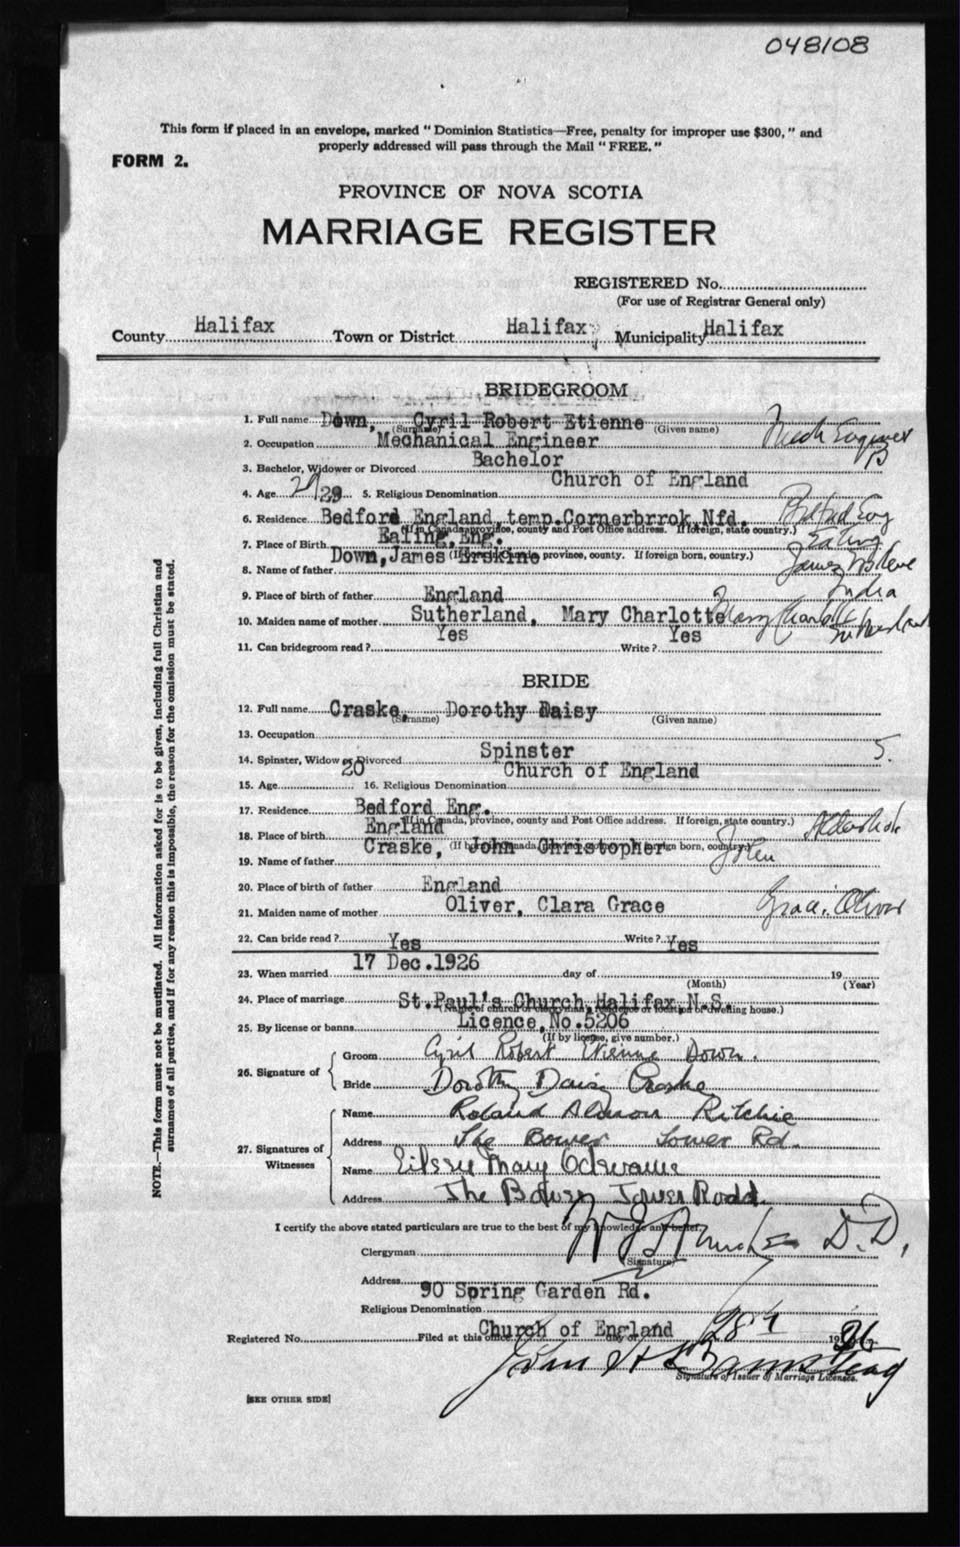 048108
This form if placed in an envelope, marked "Dominion Statistics—Free, penalty for improper use $300," and
properly addressed will pass through the Mail "FREE."
FORM 2.
PROVINCE OF NOVA SCOTIA
MARRIAGE REGISTER
REGISTERED No.
(For use of Registrar General only)
County Halifax Town or District Halifax Municipality Halifax
BRIDEGROOM
1. Full name Down, Cyril Robert Etienne
(Surname) (Given name)
2. Occupation Mechanical Engineer Mech Engineer
3. Bachelor, Widower or Divorced Bachelor B
4. Age 29 29 5. Religious Denomination Church of England
6. Residence Bedford England, temp.Cornerbrrok,Nfd. Bedford Eng
(If in Canada, province, county and Post Office address. If foreign, state country.)
7. Place of Birth Ealing,Eng. Ealing
(If born in Canada, province, county. If foreign born, country.)
8. Name of father Down,James Erskine James
9. Place of birth of father England India
10. Maiden name of mother Sutherland, Mary Charlotte Mary Charlotte Sutherland
11. Can bridegroom read? Yes Write? Yes
BRIDE
12. Full name Craske, Dorothy Daisy
(Surname) (Given name)
13. Occupation
14. Spinster, Widow or Divorced Spinster S.
15. Age 20 16. Religious Denomination Church of England
17. Residence Bedford Eng.
(If in Canada, province, county and Post Office address. If foreign, state country.)
18. Place of birth England Aldershot
(If born in Canada, province, county. If foreign born, country.)
19. Name of father Craske, John Christopher John
20. Place of birth of father England
21. Maiden name of mother Oliver, Clara Grace Grace Oliver
22. Can bride read? Yes Write? Yes
23. When married 17 Dec.1926 day of 19
(Month) (Year)
24. Place of marriage St.Paul's Church,Halifax,N.S.
(Name of church or clergyman's residence or location of dwelling house.)
25. By license or banns Licence,No.5206
(If by license, give number.)
26. Signature of
Groom Cyril Robert Etienne Down.
Bride Dorothy Daisy Craske
27. Signatures of Witnesses
Name Roland Almon Ritchie
Address The Bower Tower Rd.
Name Mary
Address The Bower Tower Road.
I certify the above stated particulars are true to the best of my knowledge and belief.
Clergyman D.D.
(Signature)
Address 90 Spring Garden Rd.
Religious Denomination Church of England
Registered No. Filed at this office day of 28th 1926
Signature of Issuer of Marriage Licenses.
[SEE OTHER SIDE]
NOTE.—This form must not be mutilated. All information asked for is to be given, including full Christian and
surnames of all parties, and if for any reason this is impossible, the reason for the omission must be stated.